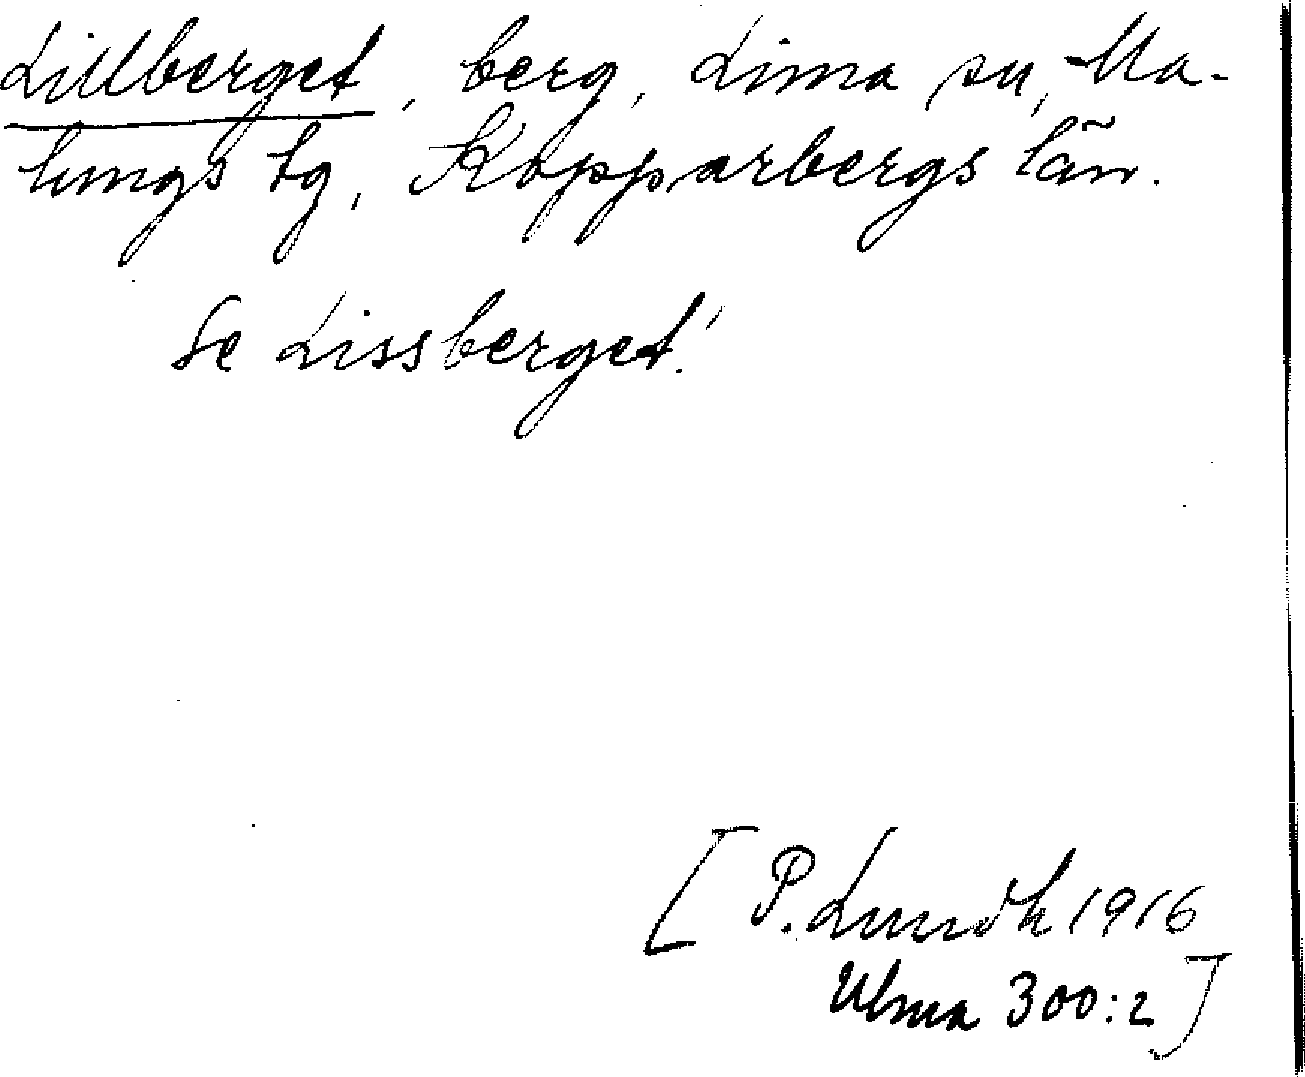 Lillberget, berg, Lima sn, Ma-
lungs tg, Kopparbergs län.
Se Lissberget!
[P. Lundh 1916
Ulma 300:2]